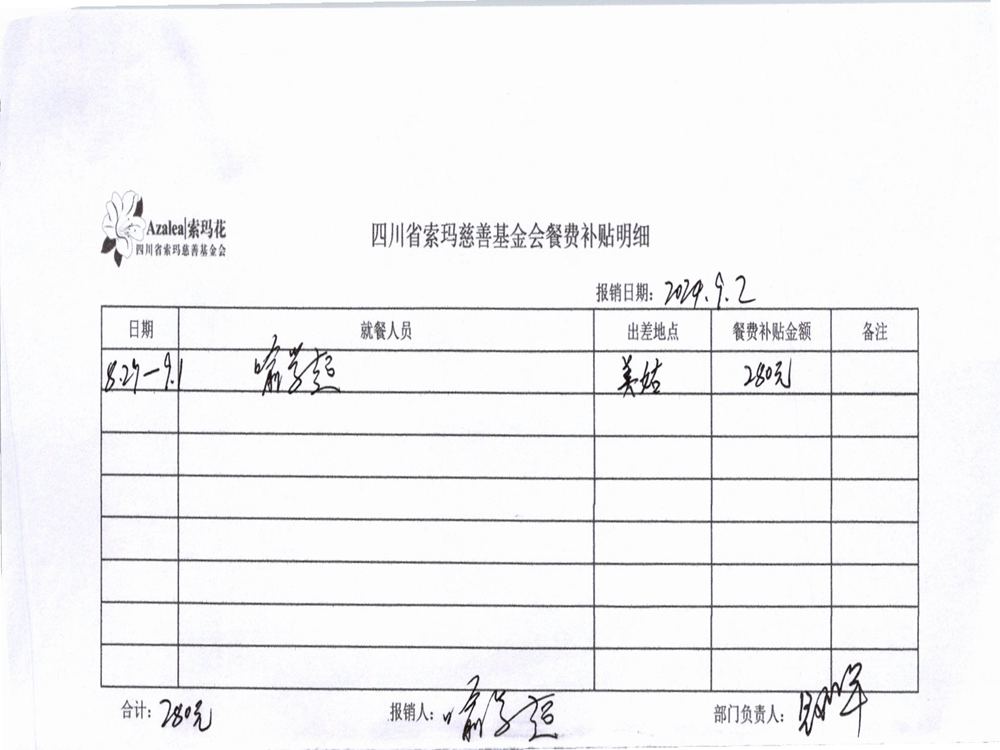 Azalea|索玛花
四川省索玛慈善基金会
四川省索玛慈善基金会餐费补贴明细
报销日期：2024.9.2
日期 就餐人员 出差地点 餐费补贴金额 备注
8.27-9.1 喻学超 美姑 280元
合计：280元 报销人：喻学超 部门负责人：